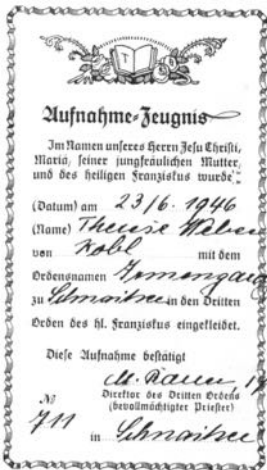 Aufnahme-Zeugnis
Im Namen unseres Herrn Jesu Christi,
Mariä, seiner jungfräulichen Mutter,
und des heiligen Franziskus wurde
(Datum) am 23/6. 1946
(Name) Therese Weber
von Kobl mit dem
Ordensnamen Irmengard
zu Schnaitsee in den Dritten
Orden des hl. Franziskus eingekleidet.
Diese Aufnahme bestätigt
M.
Direktor des Dritten Ordens
(bevollmächtigter Priester)
No
711 in Schnaitsee